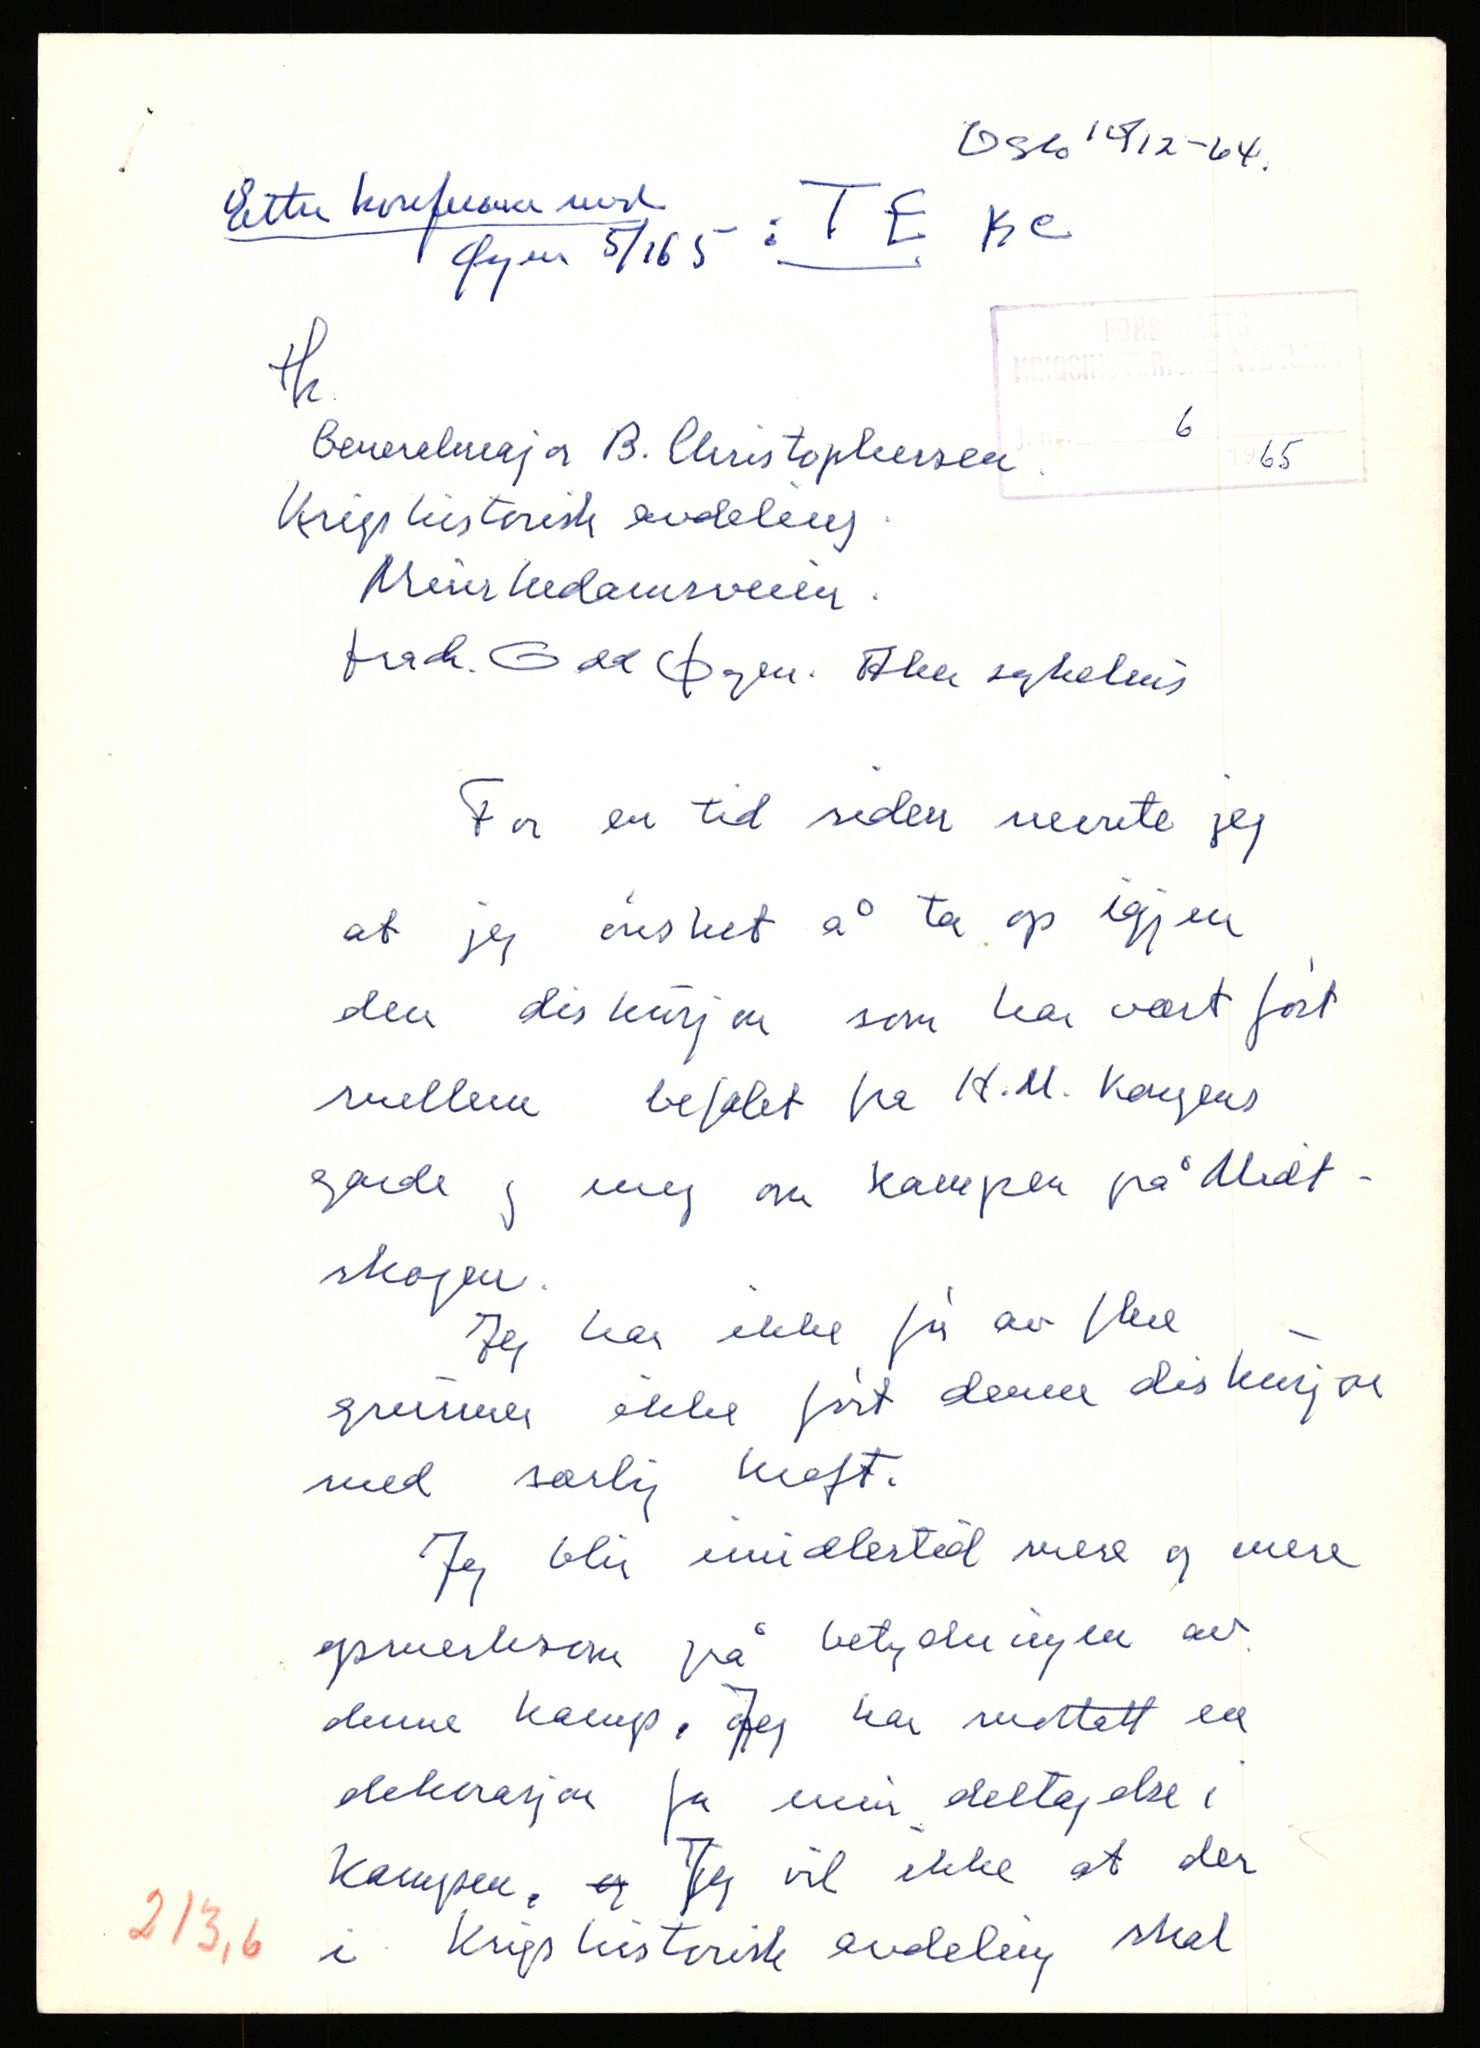 Oslo 12-64.
Etter konferanse med
Øyen 5/1 65 : T E Kc
FORSVARETS
KRIGSHISTORISKE AVDELING
J. nr. 6
1965
Generalmajor B. Christophersen.
Krigshistorisk avdeling.
Munkedamsveien.
frach. Odd Øyen. Aker sykehus
For en tid siden nevnte jeg
at jeg ønsket å ta op igjen
den diskusjon som har vært ført
mellem befalet fra H.M. Kongens
garde og meg om kampen på Midt-
skogen.
Jeg har ikke før av flere
grunner ikke ført denne diskusjon
med særlig kraft.
Jeg blir imidlertid mere og mere
opmerksom på betydningen av
denne kamp. Jeg har mottatt en
dekorasjon for min deltagelse i
kampen. og Jeg vil ikke at der
i Krigshistorisk avdeling skal
213,6